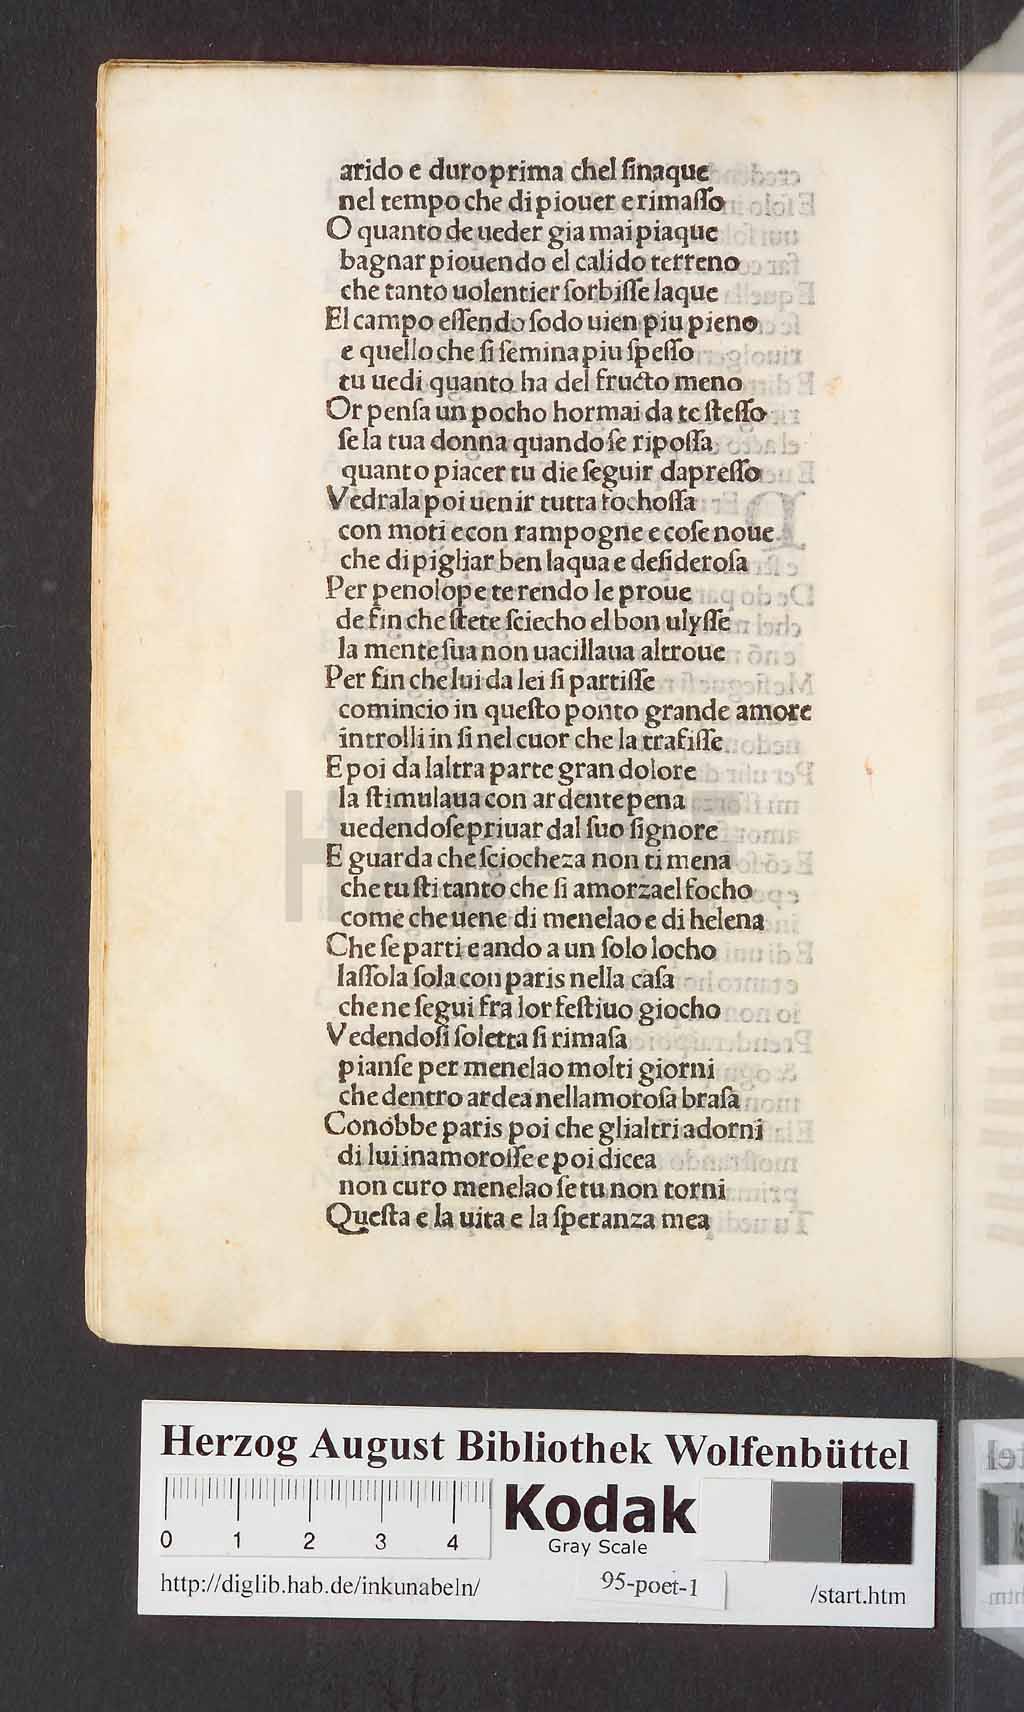 arido e duro prima chel ſinaque
nel tempo che di piouer e rimaſſo
O quanto de ueder gia mai piaque
bagnar piouendo el calido terreno
che tanto uolentier ſorbiſſe laque
El campo eſſendo ſodo uien piu pieno
e quello che ſi ſemina piu ſpeſſo
tu uedi quanto ha del fructo meno
Or penſa un pocho hormai da te ſteſſo
ſe la tua donna quando ſe ripoſſa
quanto piacer tu die ſeguir dapreſſo
Vedrala poi uenir tutta fochoſſa
con moti e con rampogne e coſe noue
che di pigliar ben laqua e deſideroſa
Per penolope te rendo le proue
de fin che ſtete ſciecho el bon ulyſſe
la mente ſua non uacillaua altroue
Per fin che lui da lei ſi partiſſe
comincio in queſto ponto grande amore
introlli in ſi nel cuor che la trafiſſe
E poi da laltra parte gran dolore
la ſtimulaua con ardente pena
uedendoſe priuar dal ſuo ſignore
E guarda che ſciocheza non ti mena
che tu ſti tanto che ſi amorza el focho
come che uene di menelao e di helena
Che ſe parti e ando a un ſolo locho
laſſola ſola con paris nella caſa
che ne ſegui fra lor feſtiuo giocho
Vedendoſi ſoletta ſi rimaſa
pianſe per menelao molti giorni
che dentro ardea nellamoroſa braſa
Conobbe paris poi che glialtri adorni
di lui inamoroſſe e poi dicea
non curo menelao ſe tu non torni
Queſta e la uita e la ſperanza mea
HAB WF
Herzog August Bibliothek Wolfenbüttel
0 1 2 3 4
Kodak
Gray Scale
http://diglib.hab.de/inkunabeln/ 95-poet-1 /start.htm